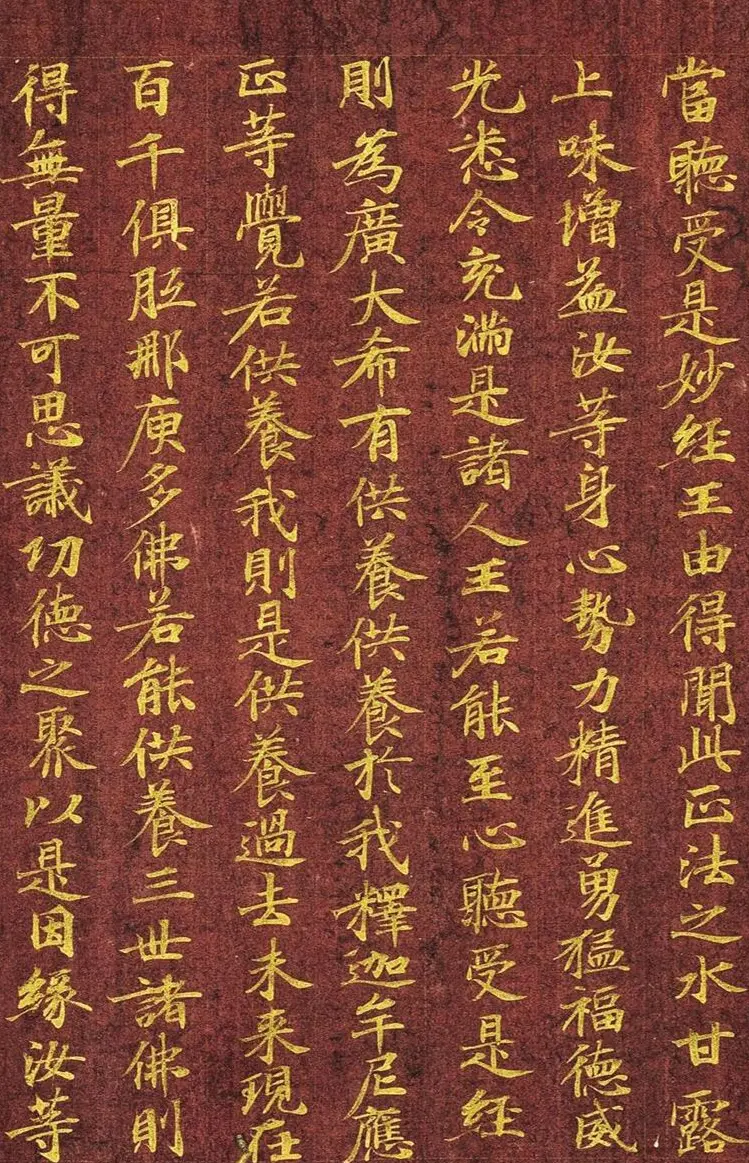 當聽受是妙經王由得聞此正法之水甘露
上味增益汝等身心勢力精進勇猛福德威
光悉令充滿是諸人王若能至心聽受是經
則為廣大希有供養供養於我釋迦牟尼應
正等覺若供養我則是供養過去未来現在
百千俱胝那庾多佛若能供養三世諸佛則
得無量不可思議功德之聚以是因緣汝等